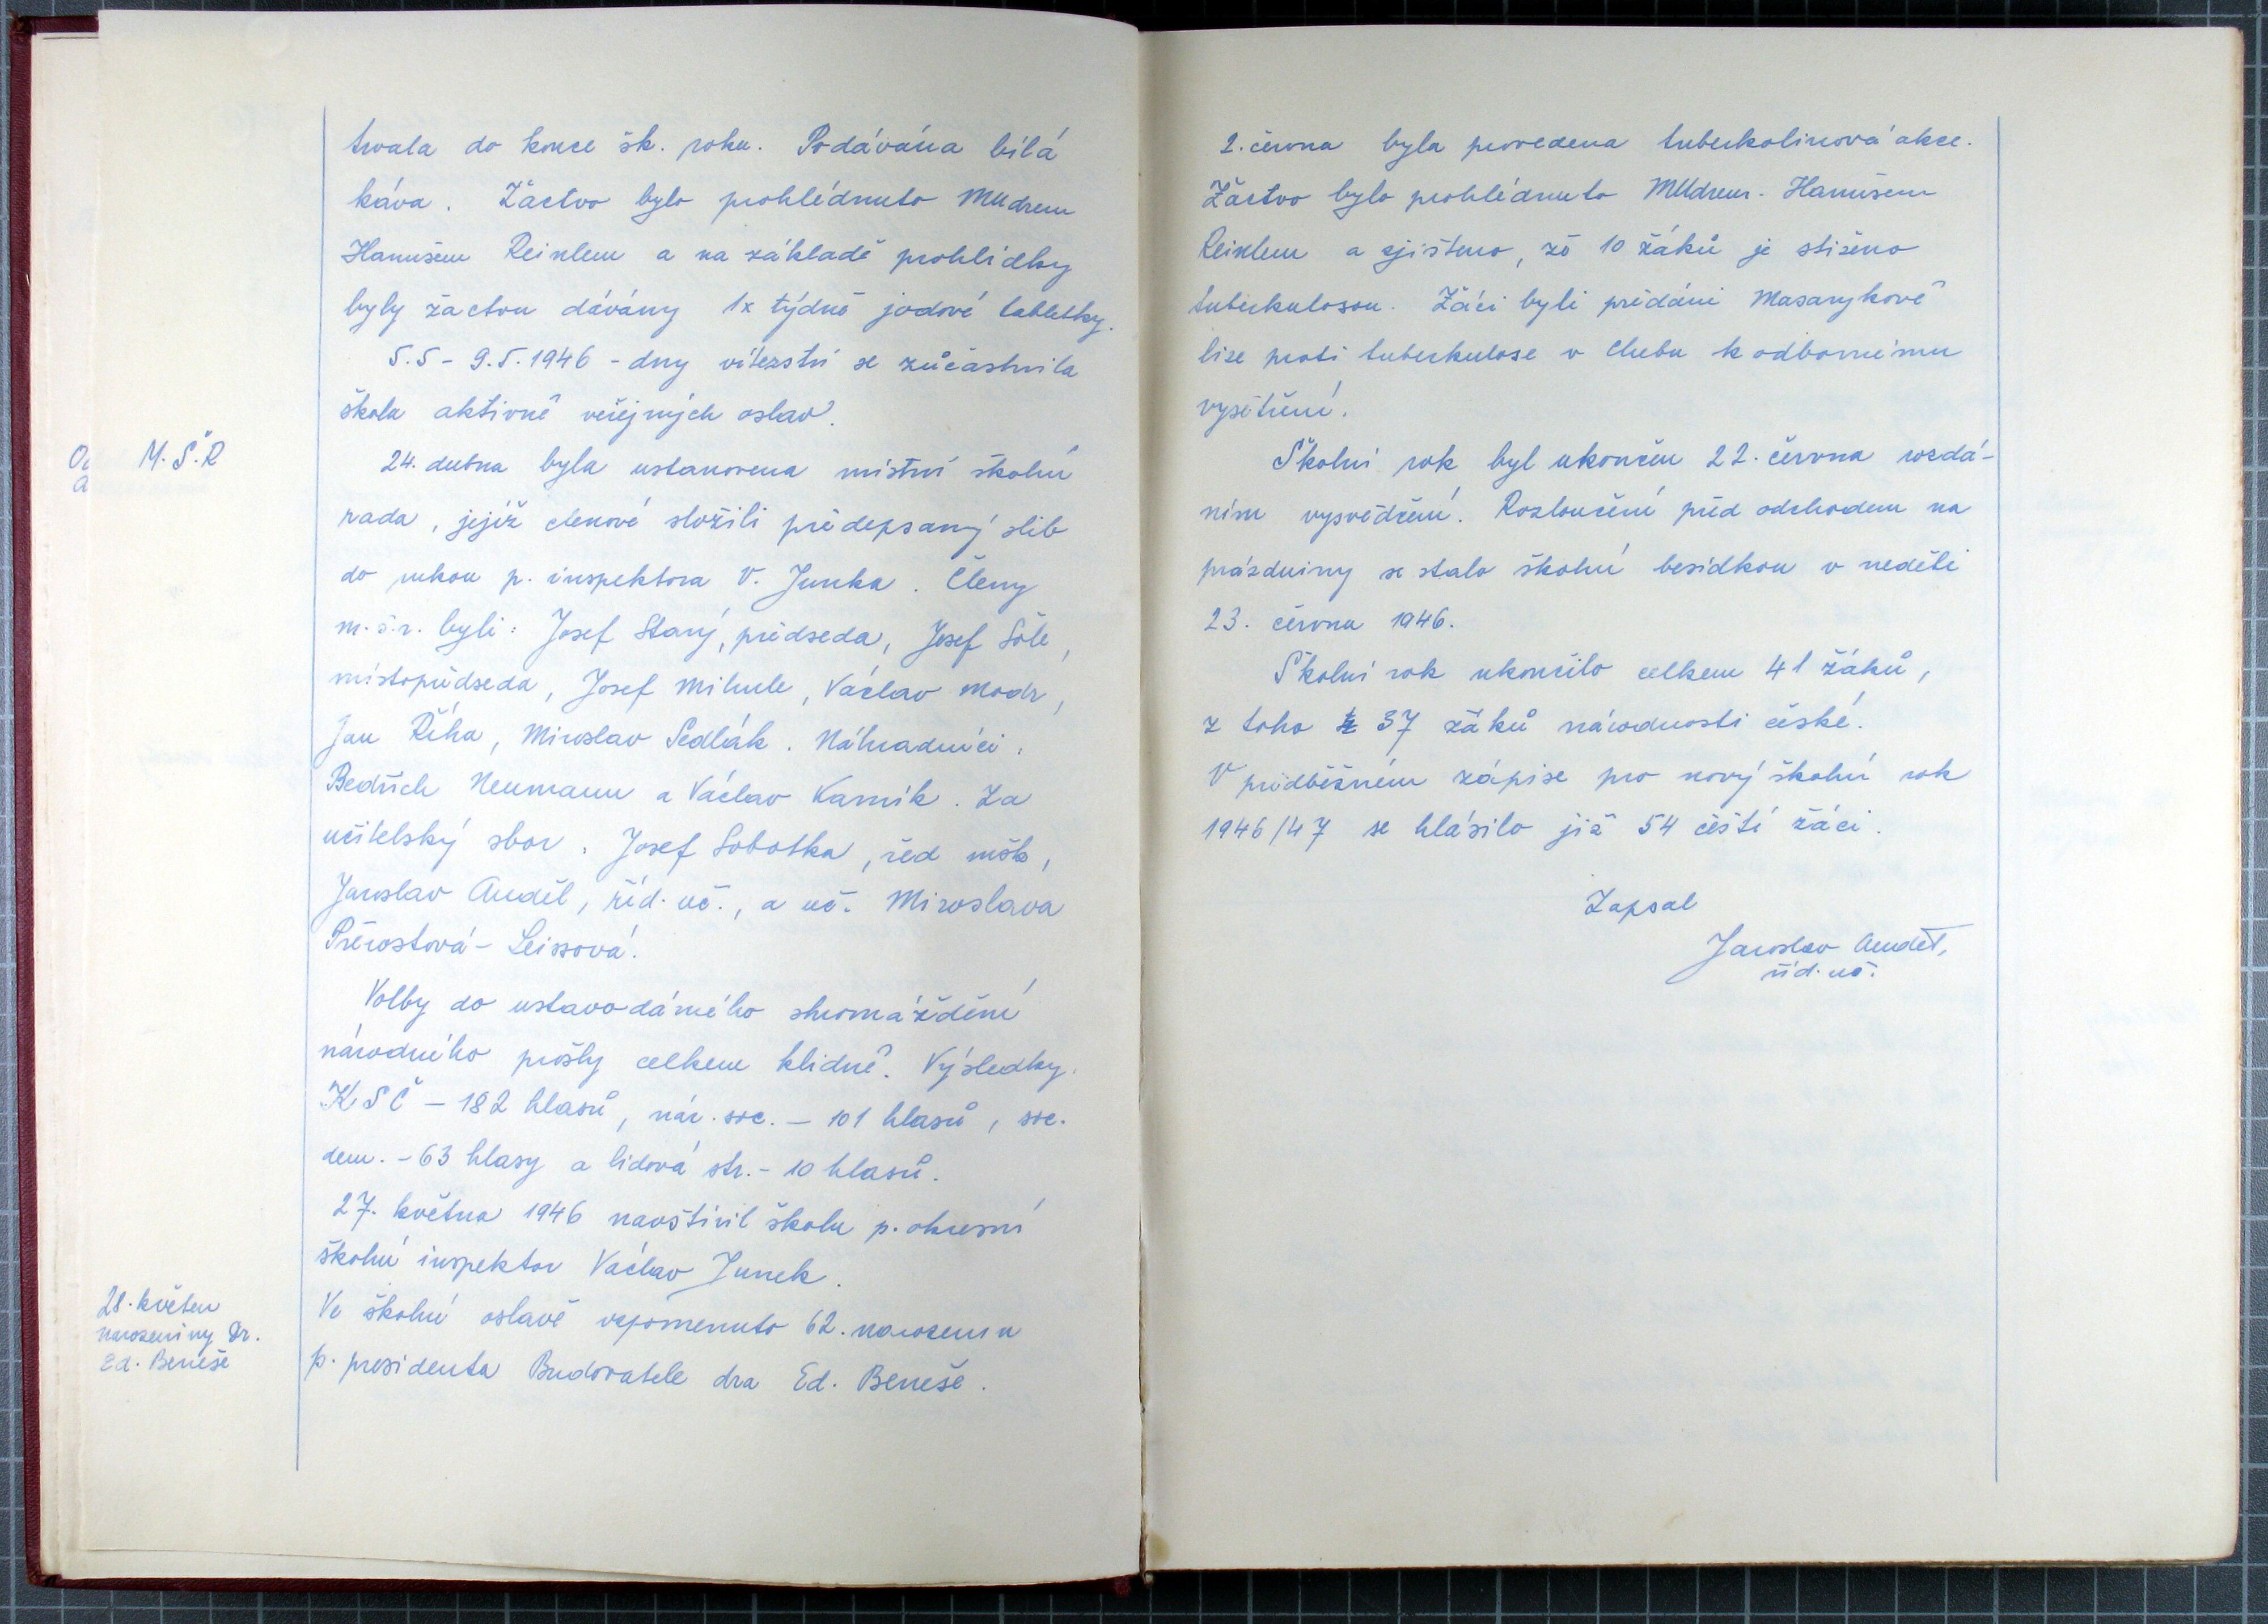 trvala do konce šk. roku. Podávána bílá
káva. Žáctvo bylo prohlédnuto MUdrem
Hanušem Reinlem a na základě prohlídky
byly žactvu dávány 1x týdně jodové tabletky.
5.5 - 9.5.1946 - dny vítězství se zůčastnila
škola aktivně veřejných oslav.
M.Š.R
24. dubna byla ustanovena místní školní
rada, jejíž členové složili předepsaný slib
do rukou p. inspektora V. Junka. Členy
m.š.r. byli: Josef Starý, předseda, Josef Šole,
místopředseda, Josef Mihule, Václav Modr,
Jan Říha, Miroslav Sedlák. Náhradníci:
Bedřich Neumann a Václav Karník. Za
učitelský sbor: Josef Sobotka, řed mšk,
Jaroslav Anděl, říd. uč., a uč. Miroslava
Přerostová - Leissová.
Volby do ustavodárného shromáždění
národního prošly celkem klidně. Výsledky:
KSČ - 182 hlasů, nár. soc. - 101 hlasů, soc.
dem. - 63 hlasy a lidová str. - 10 hlasů.
27. května 1946 navštívil školu p. okresní
školní inspektor Václav Junek.
28. květen
narozeniny Dr.
Ed. Beneše
Ve školní oslavě vzpomenuto 62. narozenin
p. presidenta Budovatele dra Ed. Beneše.
2. června byla provedena tuberkolinová akce.
Žáctvo bylo prohlédnuto MUdrem. Hanušem
Reinlem a zjištěno, že 10 žáků je stiženo
tuberkulosou. Žáci byli přidáni Masarykově
lize proti tuberkulose v Chebu k odbornému
vyšetření.
Školní rok byl ukončen 22. června rozdá-
ním vysvědčení. Rozloučení před odchodem na
prázdniny se stalo školní besídkou v neděli
23. června 1946.
Školní rok ukončilo celkem 41 žáků,
z toho 37 žáků národnosti české.
V předběžném zápise pro nový školní rok
1946/47 se hlásilo již 54 čeští žáci.
Zapsal
Jaroslav Anděl,
říd. uč.